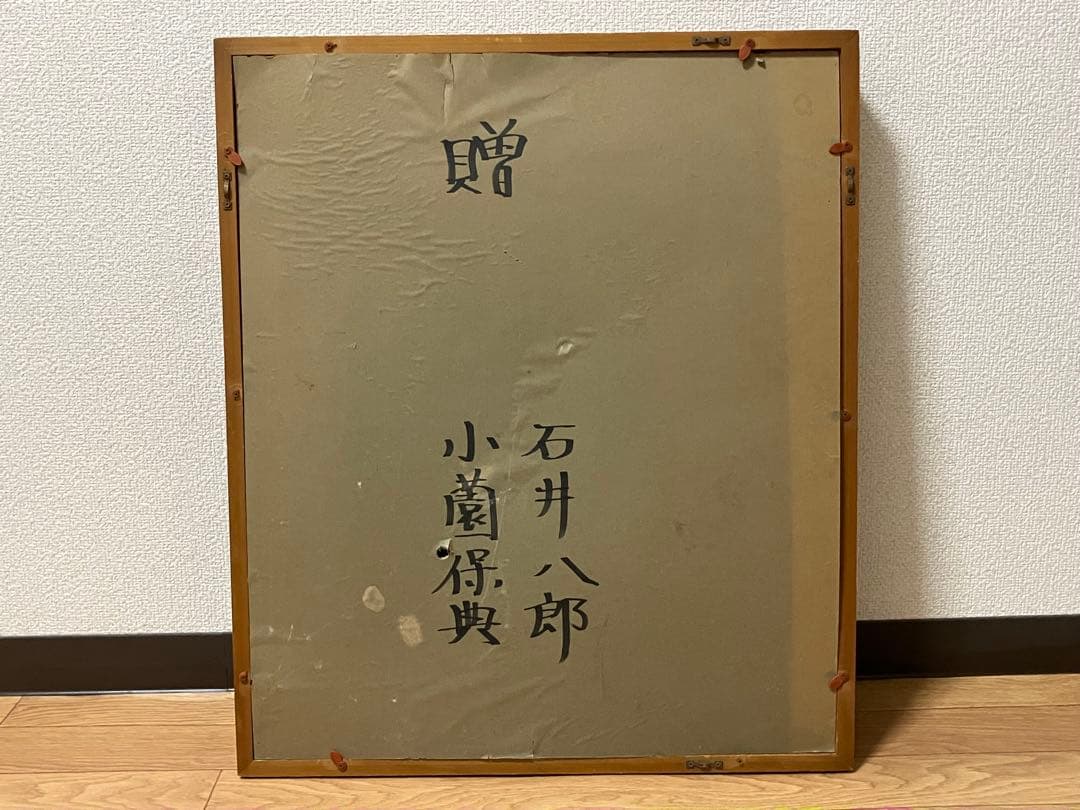 贈
石井八郎
小薗保典